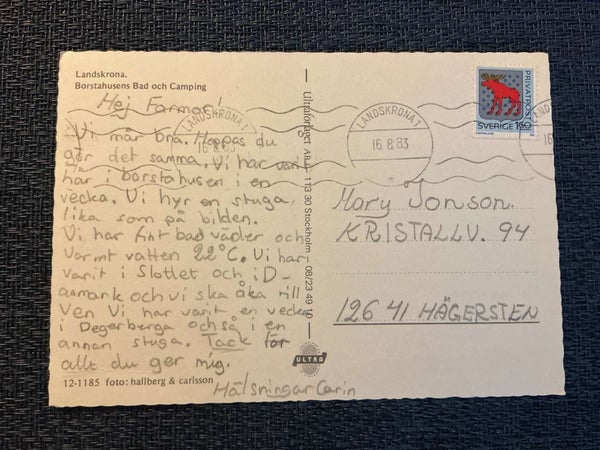 Landskrona.
Borstahusens Bad och Camping
Hej Farmor!
Vi mår bra. Hoppas du
gör det samma. Vi har varit
här i borstahusen i en
vecka. Vi hyr en stuga,
lika som på bilden.
Vi har fint bad väder och
varmt vatten 22°C. Vi har
varit i Slottet och i D-
anmark och vi ska åka till
Ven Vi har varit en vecka
i Degerberga också i en
annan stuga. Tack för
allt du ger mig.
Hälsningar Carin
12-1185 foto: hallberg & carlsson
Ultraförlaget A.B. 113 30 Stockholm - 08/23 49 10
ULTRA
LANDSKRONA 1
16.8.83
LANDSKRONA 1
16.8.83
PRIVATPOST
SVERIGE 160
Mary Jonson.
KRISTALLV. 94
126 41 HÄGERSTEN